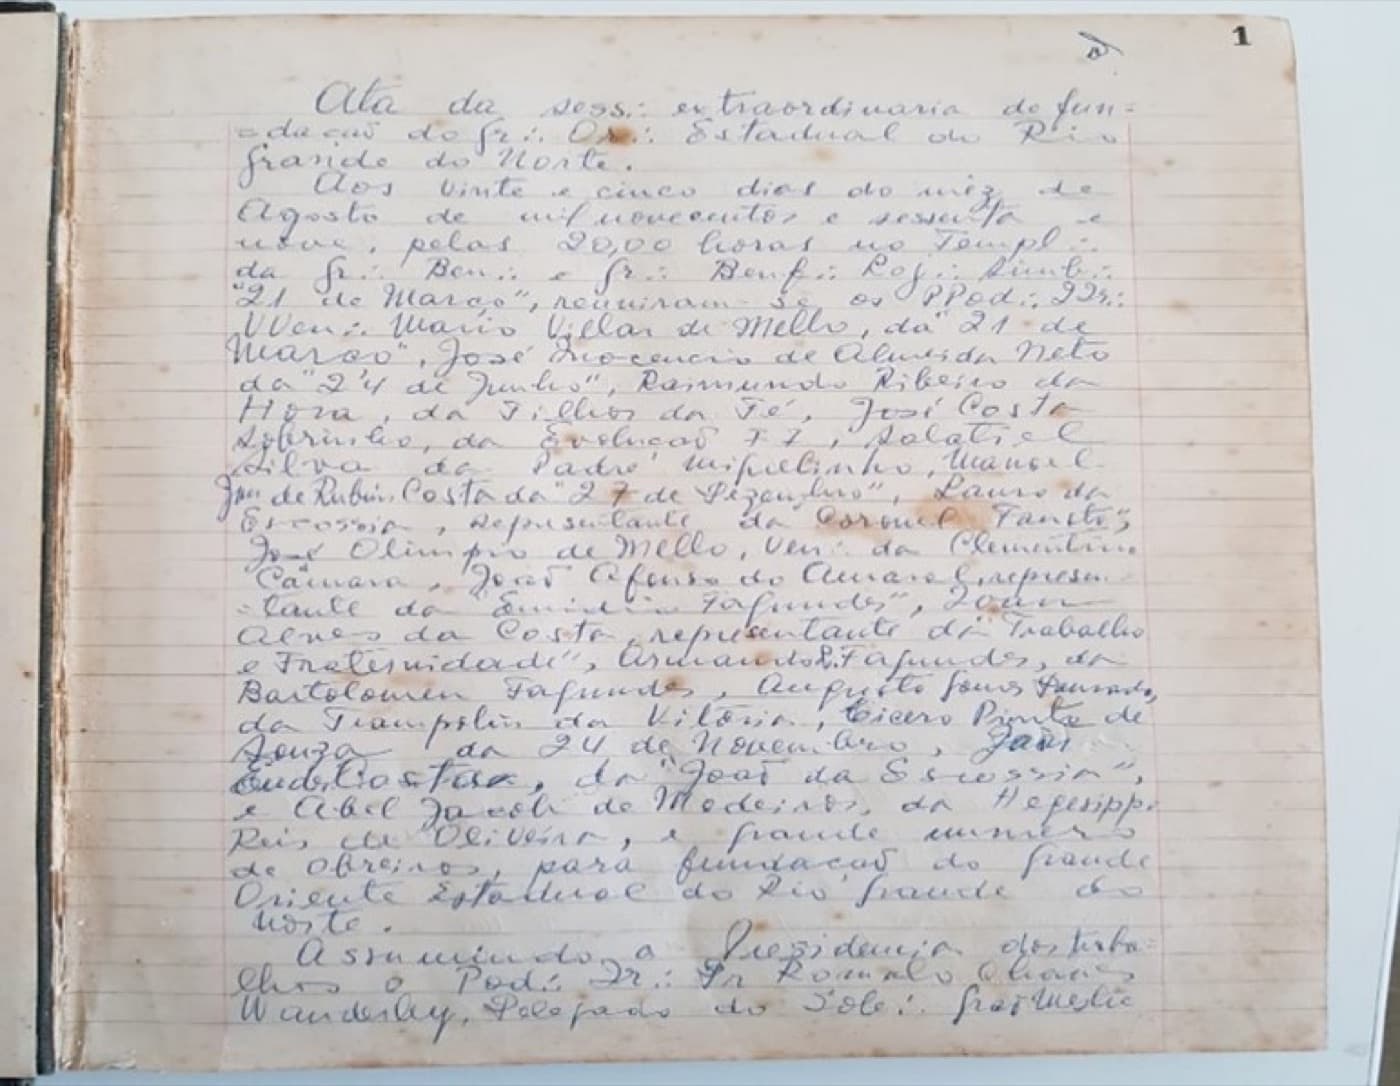 1
Ata da sess∴ extraordinaria de fun=
=dação do Gr∴ Or∴ Estadual do Rio
Grande do Norte.
Aos vinte e cinco dias do mêz de
Agosto de mil novecentos e sessenta e
nove, pelas 20,00 horas no Templ∴
da Gr∴ Ben∴ e Gr∴ Benf∴ Loj∴ Simb∴
"21 de Março", reuniram-se os PPod∴
VVen∴ Mario Villar de Mello, da "21 de
Março", José Inocencio de Almeida Neto
da "24 de Junho", Raimundo Ribeiro da
Hora, da Filhos da Fé, José Costa
Sobrinho, da Evolução, Salatiel
Silva da Padre Miguelinho, Manoel
de Costa da "27 de Dezembro", Lauro da
Escossia, representante da "Coronel Fausto",
José Olimpio de Mello, Ven∴ da Clementino
Câmara, João Afonso do Amaral, represen-
=tante da "Emidio Fagundes", Joan
Alves da Costa, representante da "Trabalho
e Fraternidade", Armando Fagundes, da
Bartolomeu Fagundes, Augusto Gomes
da Trampolin da Vitória, Cicero Pinto de
Souza da 24 de Novembro, João
Costa, da "João da Escossia",
e Abel Jacob de Medeiros, da Hegesippo
Reis de Oliveira, e grande numero
de obreiros, para fundação do Grande
Oriente Estadual do Rio Grande do
Norte.
Assumindo a Presidencia dos traba=
lhos o Pod∴ Ir∴ Dr Romulo Chaves
Wanderley, Delegado do Sob∴ Grão Mestre